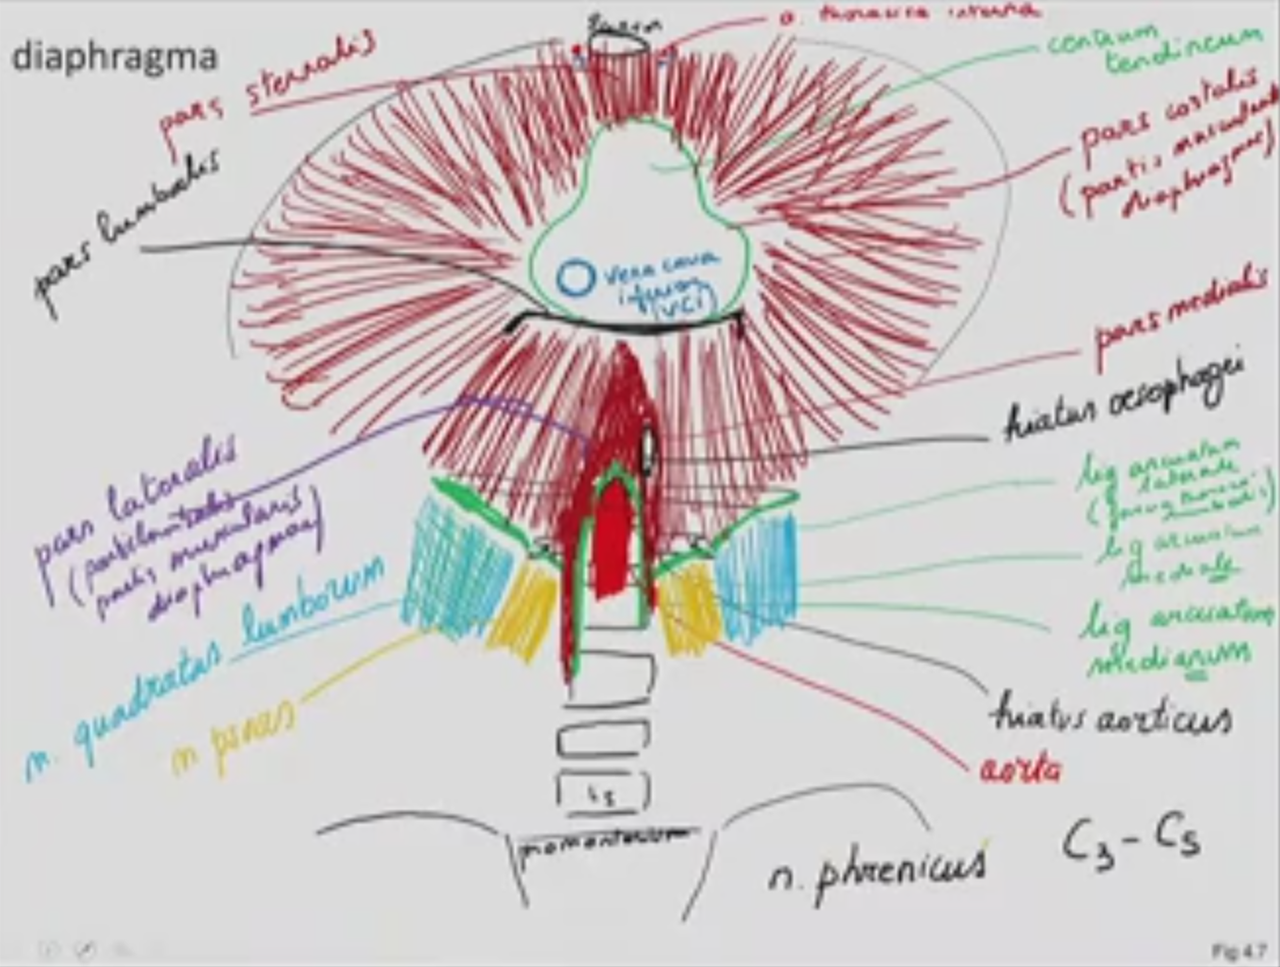 diaphragma
a. thoracica interna
pars sternalis
centrum
tendineum
pars costalis
(partis muscularis
diaphragmae)
pars lumbalis
vena cava
inferior
(VCI)
pars medialis
hiatus oesophagei
pars lateralis
partis muscularis
diaphragmae)
lig arcuatum
laterale
lig arcuatum
mediale
lig arcuatum
medianum
m. quadratus lumborum
m psoas
hiatus aorticus
aorta
L5
promontorium
n. phrenicus C3-C5
Fig 4.7